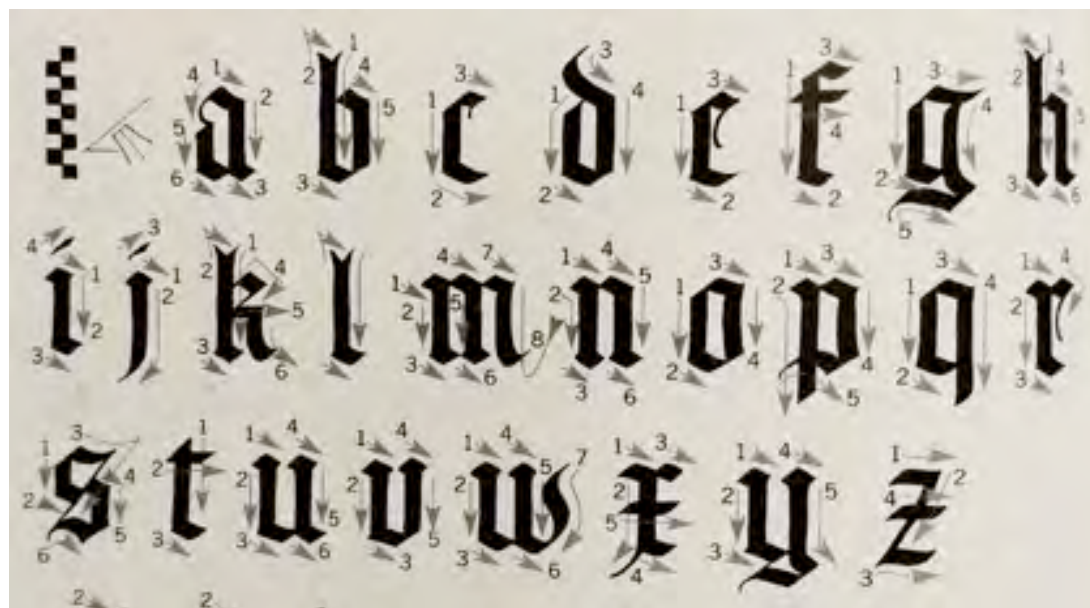 a b c d e f g h
i j k l m n o p q r
s t u v w x y z